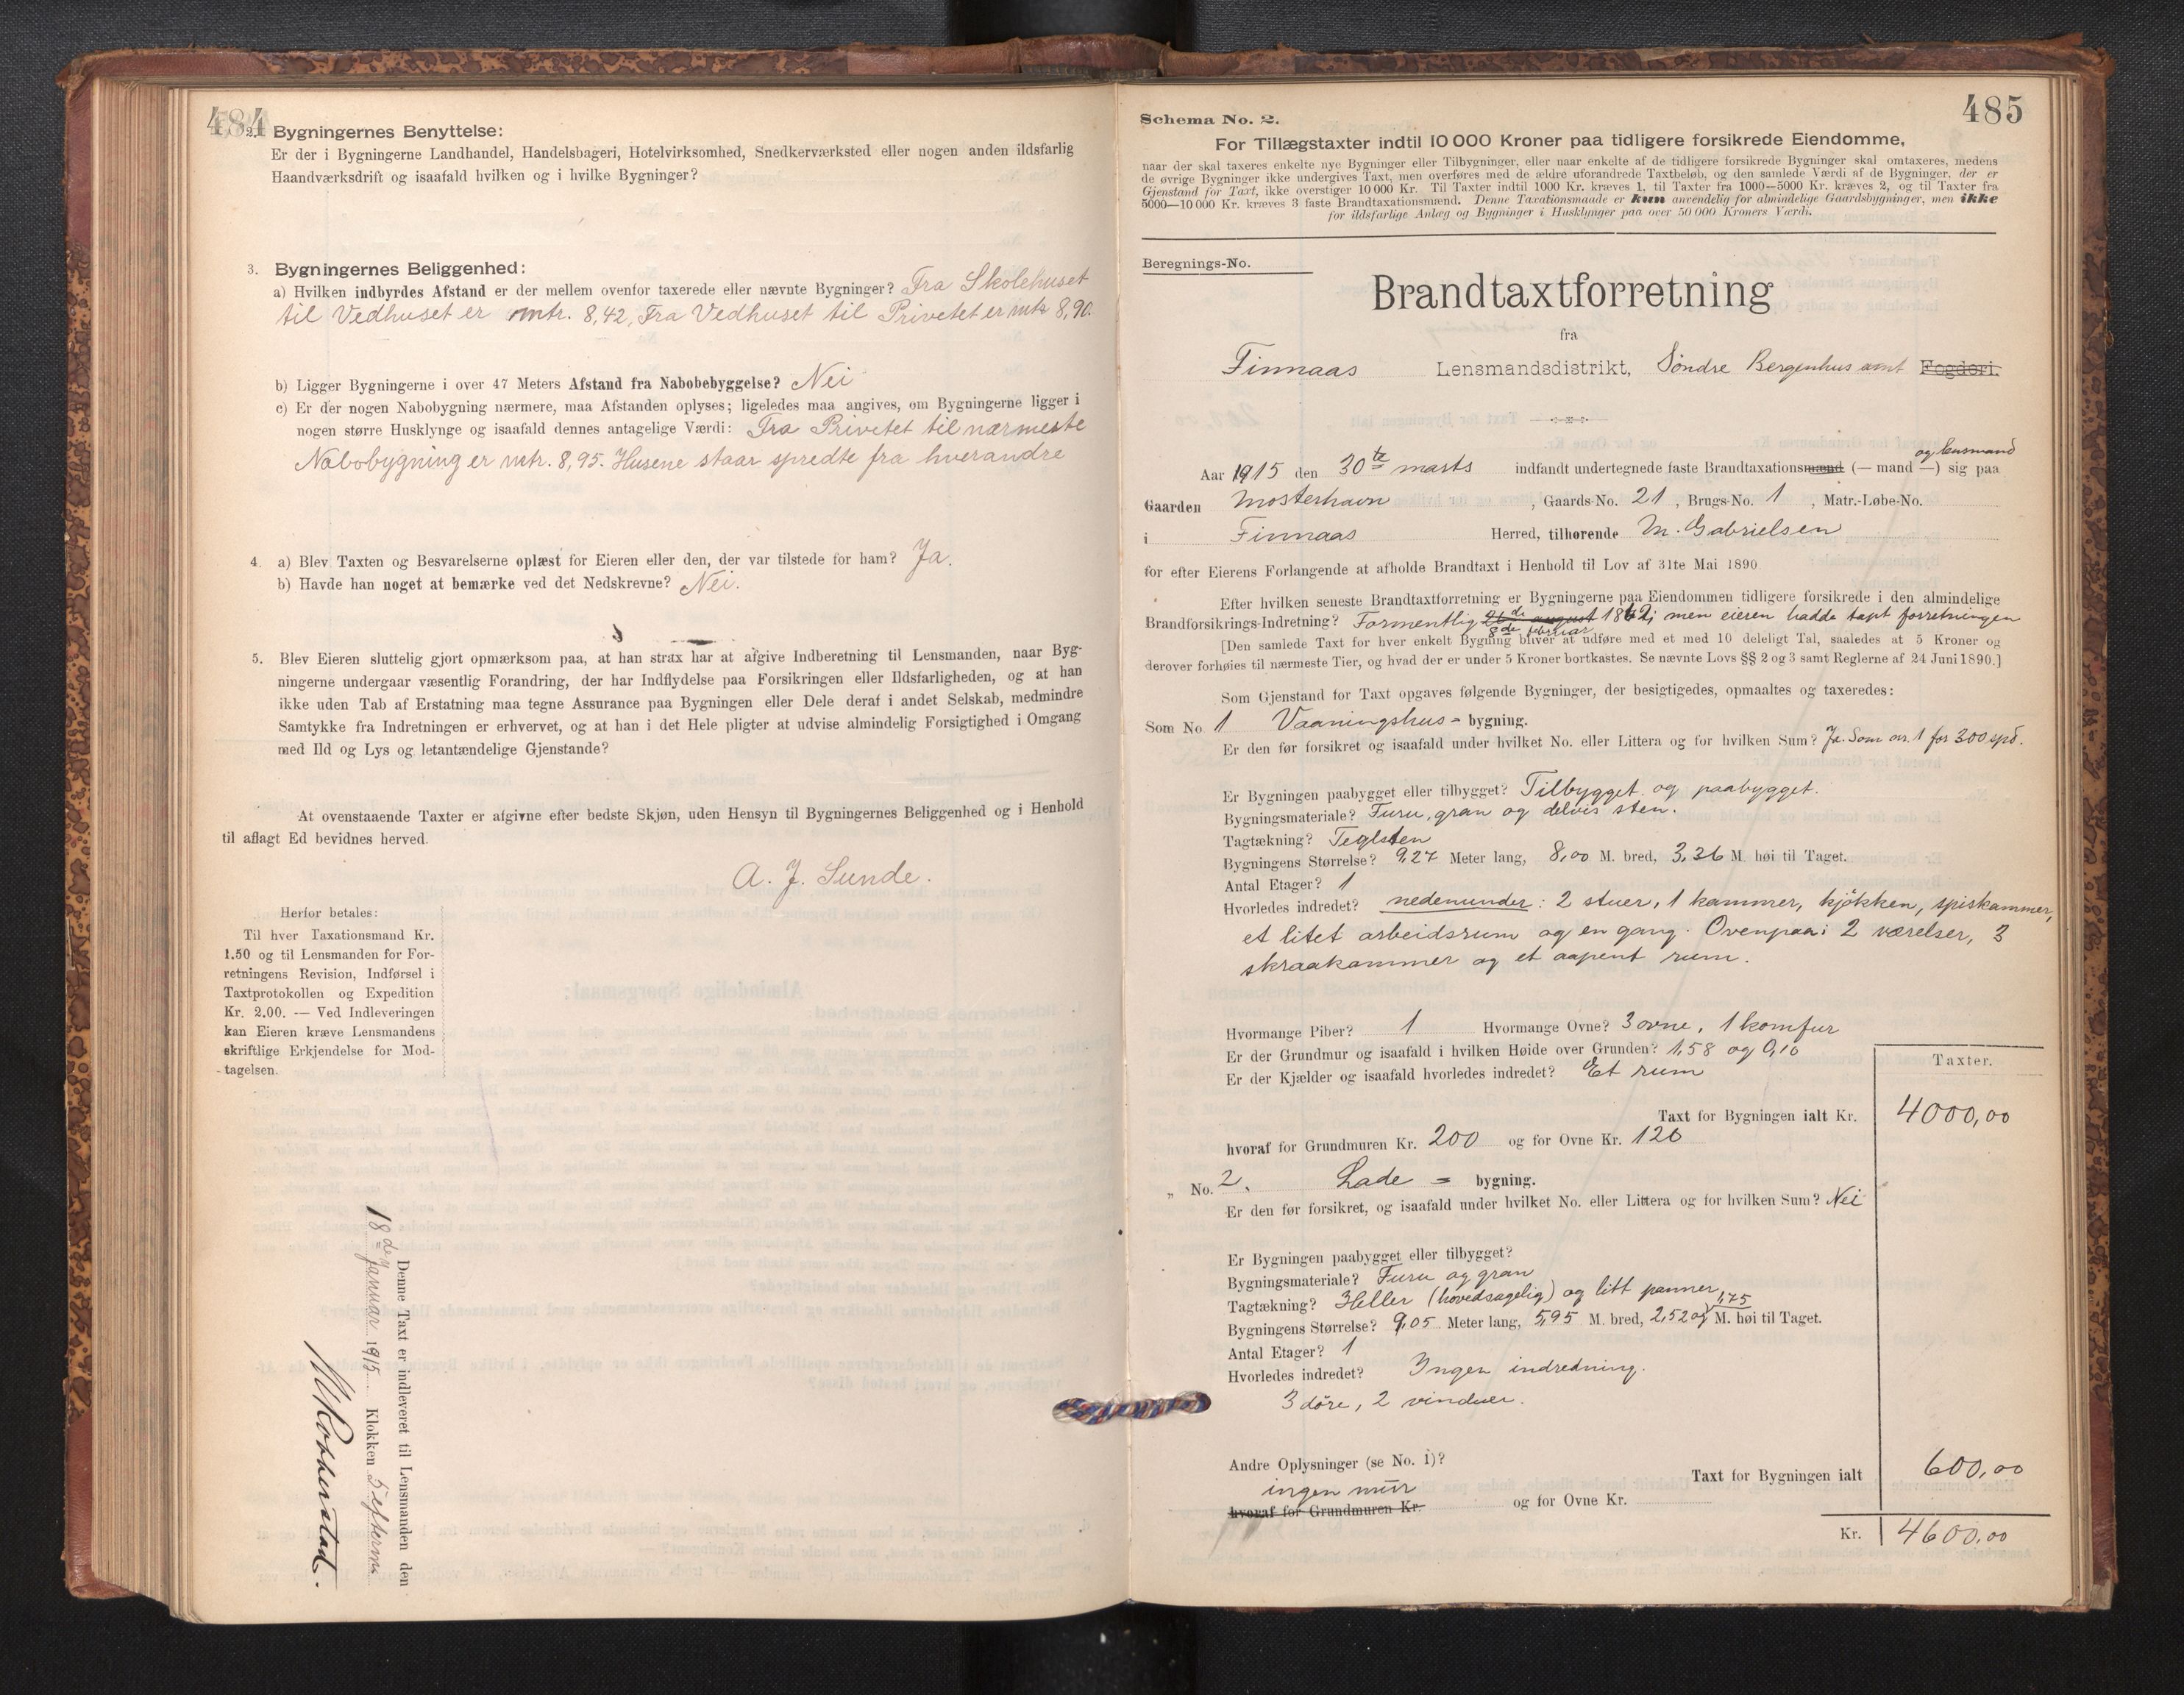 484
2. Bygningernes Benyttelse:
Er der i Bygningerne Landhandel, Handelsbageri, Hotelvirksomhed, Snedkerværksted eller nogen anden ildsfarlig
Haandværksdrift og isaafald hvilken og i hvilke Bygninger?
3. Bygningernes Beliggenhed:
a) Hvilken indbyrdes Afstand er der mellem ovenfor taxerede eller nævnte Bygninger? Fra Skolehuset
til Vedhuset er mtr. 8,42, Fra Vedhuset til Privetet er mtr 8,90.
b) Ligger Bygningerne i over 47 Meters Afstand fra Nabobebyggelse? Nei
c) Er der nogen Nabobygning nærmere, maa Afstanden oplyses; ligeledes maa angives, om Bygningerne ligger i
nogen større Husklynge og isaafald dennes antagelige Værdi: Fra Privetet til nærmeste
Nabobygning er mtr. 8,95. Husene staar spredte fra hverandre
4. a) Blev Taxten og Besvarelserne oplæst for Eieren eller den, der var tilstede for ham? Ja.
b) Havde han noget at bemærke ved det Nedskrevne? Nei.
5. Blev Eieren sluttelig gjort opmærksom paa, at han strax har at afgive Indberetning til Lensmanden, naar Byg-
ningerne undergaar væsentlig Forandring, der har Indflydelse paa Forsikringen eller Ildsfarligheden, og at han
ikke uden Tab af Erstatning maa tegne Assurance paa Bygningen eller Dele deraf i andet Selskab, medmindre
Samtykke fra Indretningen er erhvervet, og at han i det Hele pligter at udvise almindelig Forsigtighed i Omgang
med Ild og Lys og letantændelige Gjenstande?
At ovenstaaende Taxter er afgivne efter bedste Skjøn, uden Hensyn til Bygningernes Beliggenhed og i Henhold
til aflagt Ed bevidnes herved.
A. J. Sunde.
Herfor betales:
Til hver Taxationsmand Kr.
1.50 og til Lensmanden for For-
retningens Revision, Indførsel i
Taxtprotokollen og Expedition
Kr. 2.00. — Ved Indleveringen
kan Eieren kræve Lensmandens
skriftlige Erkjendelse for Mod-
tagelsen.
Denne Taxt er indleveret til Lensmanden den
18de Januar 1915 Klokken 5 efterm.
485
Schema No. 2.
For Tillægstaxter indtil 10 000 Kroner paa tidligere forsikrede Eiendomme,
naar der skal taxeres enkelte nye Bygninger eller Tilbygninger, eller naar enkelte af de tidligere forsikrede Bygninger skal omtaxeres, medens
de øvrige Bygninger ikke undergives Taxt, men overføres med de ældre uforandrede Taxtbeløb, og den samlede Værdi af de Bygninger, der er
Gjenstand for Taxt, ikke overstiger 10 000 Kr. Til Taxter indtil 1000 Kr. kræves 1, til Taxter fra 1000—5000 Kr. kræves 2, og til Taxter fra
5000—10 000 Kr. kræves 3 faste Brandtaxationsmænd. Denne Taxationsmaade er kun anvendelig for almindelige Gaardsbygninger, men ikke
for ildsfarlige Anlæg og Bygninger i Husklynger paa over 50 000 Kroners Værdi.
Beregnings-No.
Brandtaxtforretning
fra
Finnaas Lensmandsdistrikt, Søndre Bergenhus amt Fogderi.
og lensmand
Aar 1915 den 30te marts indfandt undertegnede faste Brandtaxationsmænd (— mand —) sig paa
Gaarden Mosterhavn, Gaards-No. 21, Brugs-No. 1, Matr.-Løbe-No.
i Finnaas Herred, tilhørende M. Gabrielsen
for efter Eierens Forlangende at afholde Brandtaxt i Henhold til Lov af 31te Mai 1890.
Efter hvilken seneste Brandtaxtforretning er Bygningerne paa Eiendommen tidligere forsikrede i den almindelige
Brandforsikrings-Indretning? Formentlig august 1862; men eieren hadde tapt forretningen
8de februar
[Den samlede Taxt for hver enkelt Bygning bliver at udføre med et med 10 deleligt Tal, saaledes at 5 Kroner og
derover forhøies til nærmeste Tier, og hvad der er under 5 Kroner bortkastes. Se nævnte Lovs §§ 2 og 3 samt Reglerne af 24 Juni 1890.]
Som Gjenstand for Taxt opgaves følgende Bygninger, der besigtigedes, opmaaltes og taxeredes:
Som No 1 Vaaningshus - bygning.
Er den før forsikret og isaafald under hvilket No. eller Littera og for hvilken Sum? Ja. Som nr. 1 for 300 spd.
Er Bygningen paabygget eller tilbygget? Tilbygget og paabygget.
Bygningsmateriale? Furu, gran og delvis sten.
Tagtækning? Teglsten
Bygningens Størrelse? 9,27 Meter lang, 8,00 M. bred, 3,36 M. høi til Taget.
Antal Etager? 1
Hvorledes indredet? nedenunder: 2 stuer, 1 kammer, kjøkken, spiskammer,
et litet arbeidsrum og en gang. Ovenpaa: 2 værelser, 3
skraakammer og et aapent rum.
Hvormange Piber? 1 Hvormange Ovne? 3 ovne, 1 komfur
Er der Grundmur og isaafald i hvilken Høide over Grunden? 1,58 og 0,10
Er der Kjælder og isaafald hvorledes indredet? Et rum
Taxter.
Taxt for Bygningen ialt Kr. 4000,00
hvoraf for Grundmuren Kr. 200 og for Ovne Kr. 120
" No. 2. Lade - bygning.
Er den før forsikret, og isaafald under hvilket No. eller Littera og for hvilken Sum? Nei
Er Bygningen paabygget eller tilbygget?
Bygningsmateriale? Furu og gran
Tagtækning? Heller (hovedsagelig) og litt panner
1,75
Bygningens Størrelse? 9,05 Meter lang, 5,95 M. bred, 2,52 og M. høi til Taget.
Antal Etager? 1
Hvorledes indredet? Ingen indredning.
3 døre, 2 vinduer.
Andre Oplysninger (se No. 1)?
Taxt for Bygningen ialt 600,00
ingen mur
hvoraf for Grundmuren Kr. og for Ovne Kr.
Kr. 4600,00